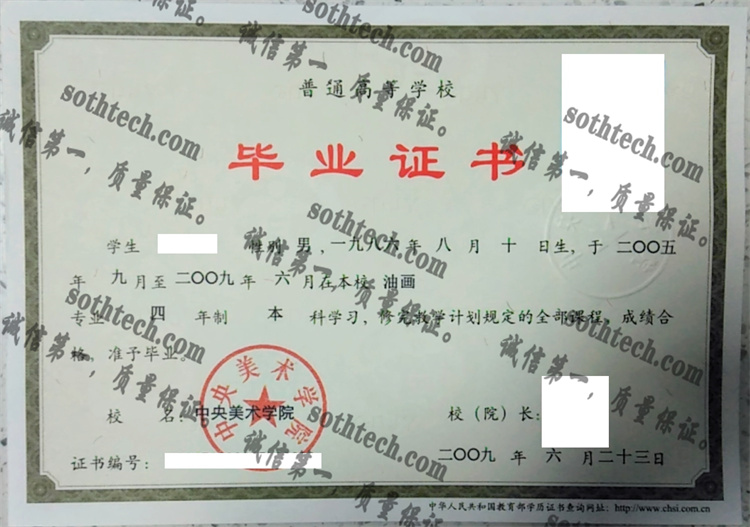 普通高等学校
毕业证书
学生 性别 男，一九八六年 八 月 十 日生，于 二〇〇五
年 九 月至 二〇〇九 年 六 月在本校 油画
专业 四 年制 本 科学习，修完教学计划规定的全部课程，成绩合
格，准予毕业。
校 名：中央美术学院
校（院）长：
中央美术学院
证书编号：
二〇〇九 年 六 月 二十三日
中华人民共和国教育部学历证书查询网址：http://www.chsi.com.cn
sothtech.com
诚信第一，质量保证。
sothtech.com
诚信第一，质量保证。
sothtech.com
诚信第一，质量保证。
sothtech.com
诚信第一，质量保证。
sothtech.com
诚信第一，质量保证。
sothtech.com
诚信第一，质量保证。
sothtech.com
诚信第一，质量保证。
sothtech.com
诚信第一，质量保证。